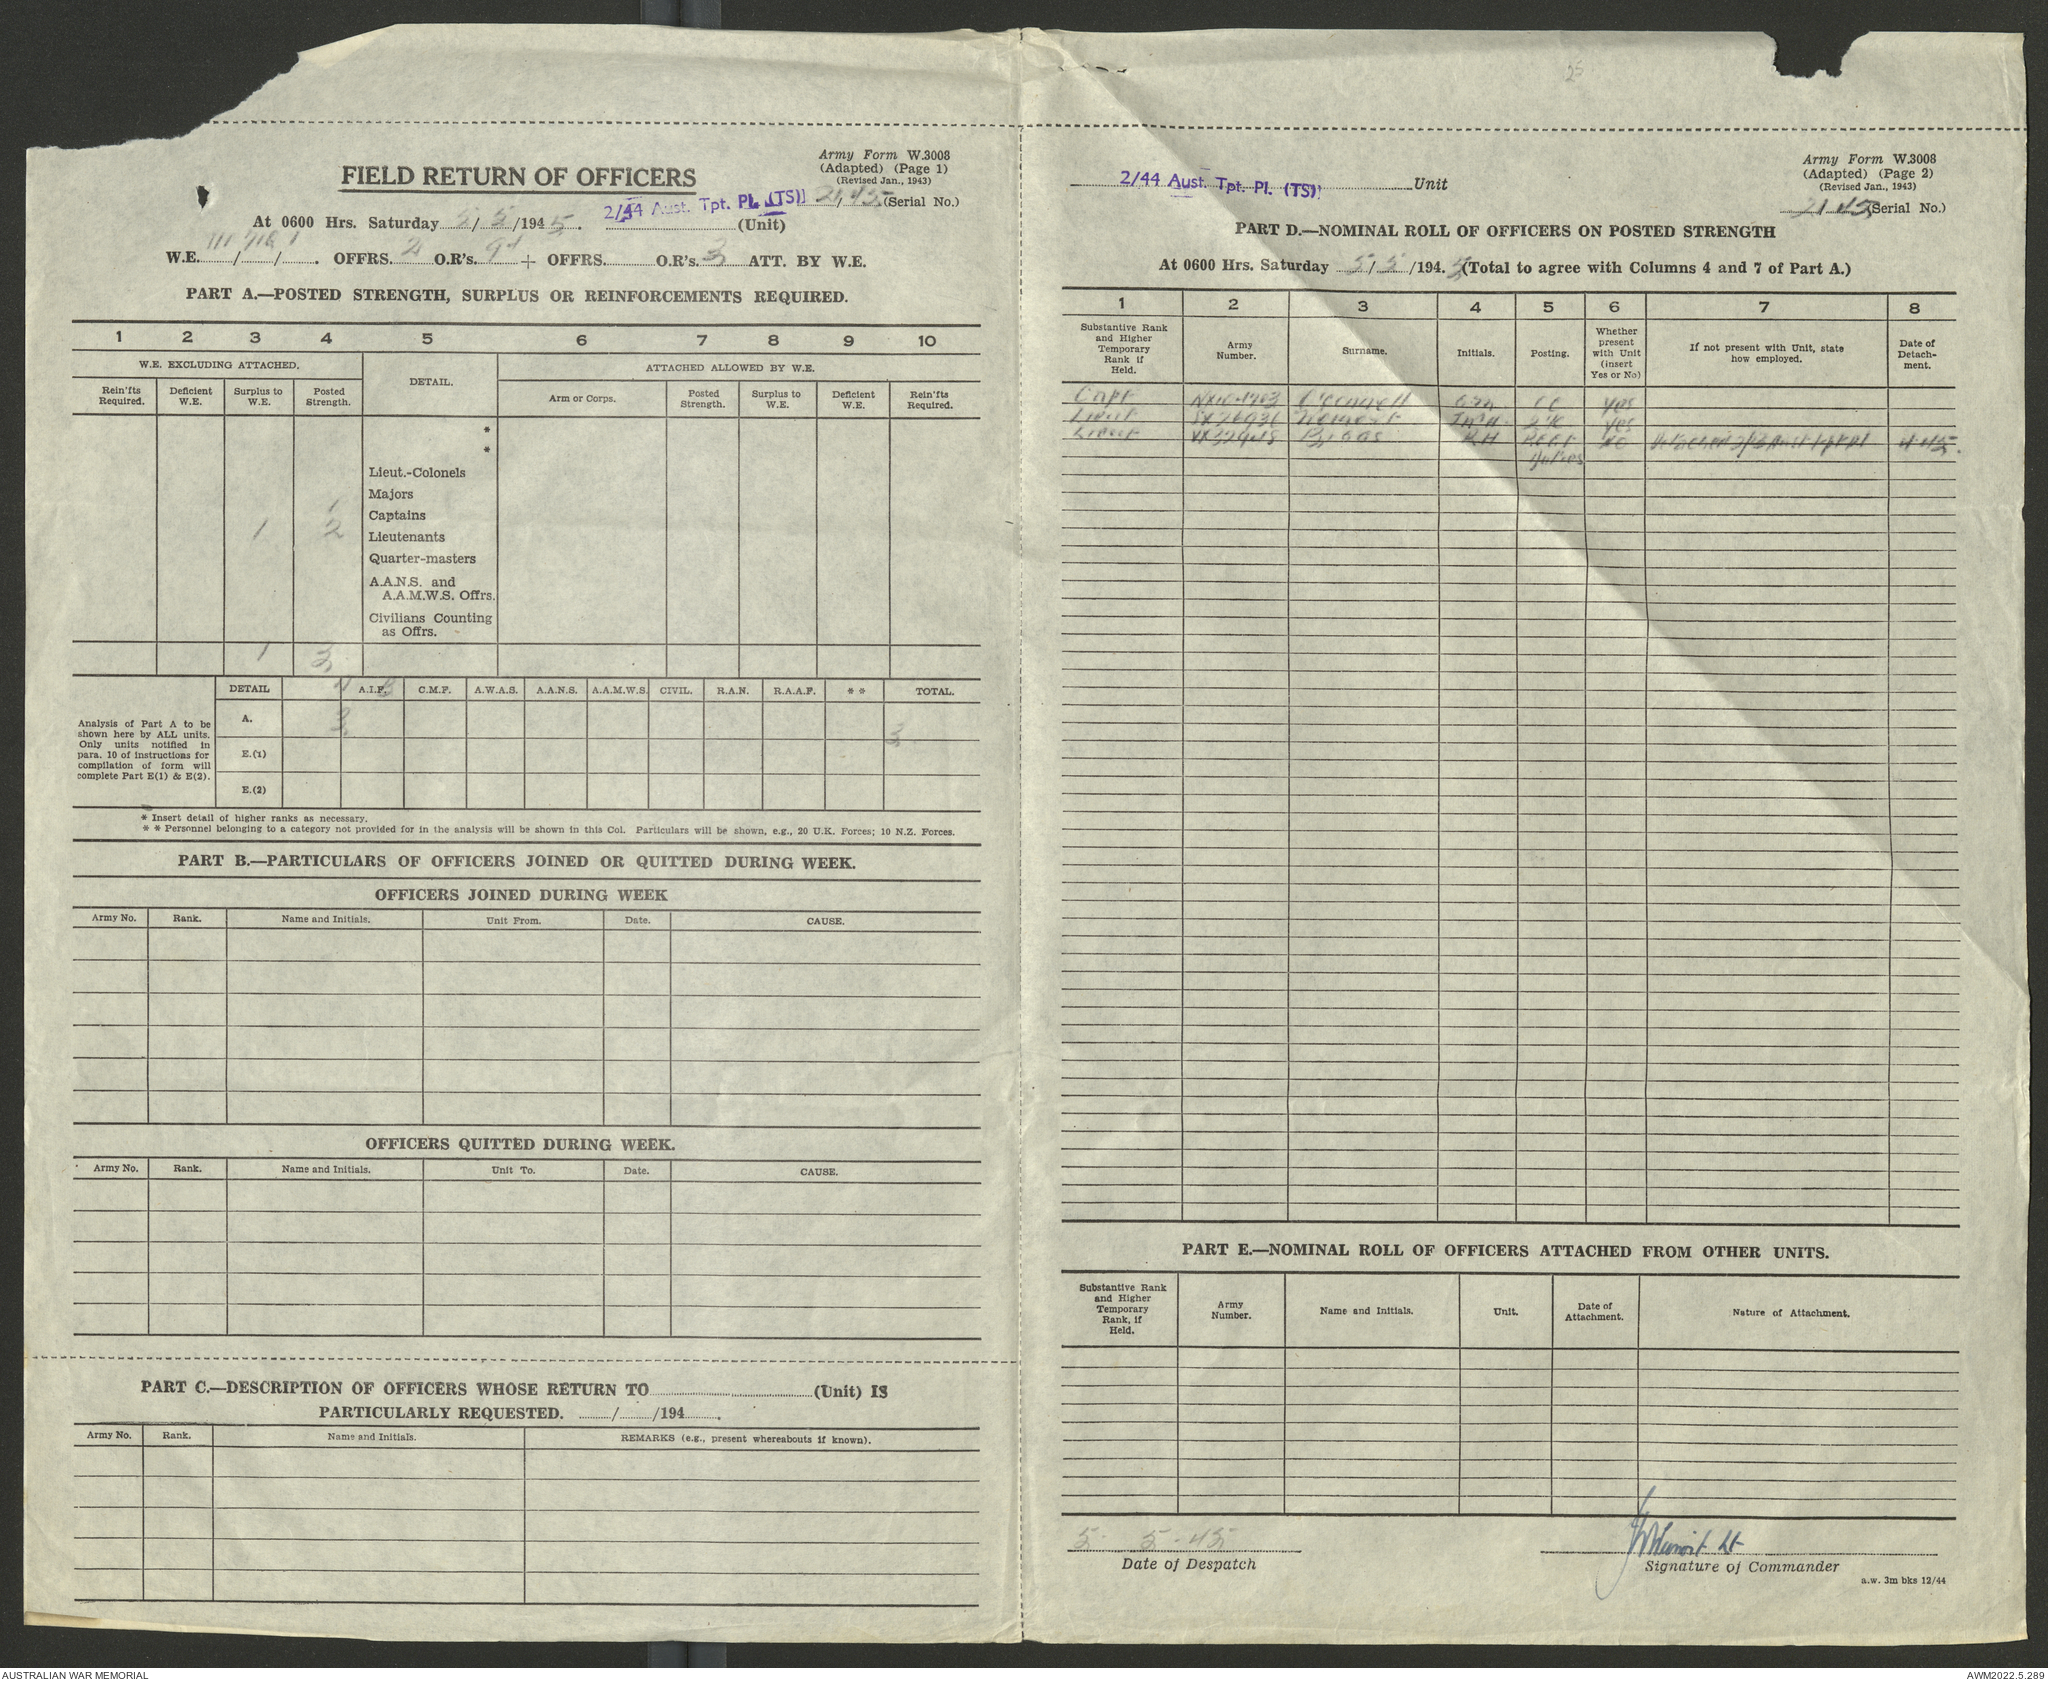 Army Form W.3008
(Adapted) (Page 1)
(Revised Jan., 1943)
FIELD RETURN OF OFFICERS
2/44 Aust. Tpt. Pl. (TS) 21/45 (Serial No.)
At 0600 Hrs. Saturday 5/5/1945. (Unit)
W.E. III/71G/1. OFFRS. 2 O.R's. + OFFRS. O.R's. 3 ATT. BY W.E.
PART A.—POSTED STRENGTH, SURPLUS OR REINFORCEMENTS REQUIRED.
1 2 3 4 5 6 7 8 9 10
W.E. EXCLUDING ATTACHED. DETAIL. ATTACHED ALLOWED BY W.E.
Rein'fts Required. Deficient W.E. Surplus to W.E. Posted Strength. Arm or Corps. Posted Strength. Surplus to W.E. Deficient W.E. Rein'fts Required.
*
*
Lieut.-Colonels
Majors
1 Captains
1 2 Lieutenants
Quarter-masters
A.A.N.S. and
A.A.M.W.S. Offrs.
Civilians Counting
as Offrs.
1 3
DETAIL A.I.F. C.M.F. A.W.A.S. A.A.N.S. A.A.M.W.S. CIVIL. R.A.N. R.A.A.F. * * TOTAL.
Analysis of Part A to be
shown here by ALL units.
Only units notified in
para. 10 of instructions for
compilation of form will
complete Part E(1) & E(2).
A. 3 3
E.(1)
E.(2)
* Insert detail of higher ranks as necessary.
* * Personnel belonging to a category not provided for in the analysis will be shown in this Col. Particulars will be shown, e.g., 20 U.K. Forces; 10 N.Z. Forces.
PART B.—PARTICULARS OF OFFICERS JOINED OR QUITTED DURING WEEK.
OFFICERS JOINED DURING WEEK
Army No. Rank. Name and Initials. Unit From. Date. CAUSE.
OFFICERS QUITTED DURING WEEK.
Army No. Rank. Name and Initials. Unit To. Date. CAUSE.
PART C.—DESCRIPTION OF OFFICERS WHOSE RETURN TO (Unit) IS
PARTICULARLY REQUESTED. / /194 .
Army No. Rank. Name and Initials. REMARKS (e.g., present whereabouts if known).
25
Army Form W.3008
(Adapted) (Page 2)
(Revised Jan., 1943)
2/44 Aust. Tpt. Pl. (TS) Unit
21/45 (Serial No.)
PART D.—NOMINAL ROLL OF OFFICERS ON POSTED STRENGTH
At 0600 Hrs. Saturday 5/5/1945 (Total to agree with Columns 4 and 7 of Part A.)
1 2 3 4 5 6 7 8
Substantive Rank and Higher Temporary Rank if Held. Army Number. Surname. Initials. Posting. Whether present with Unit (insert Yes or No) If not present with Unit, state how employed. Date of Detachment.
Capt O'Connell OC yes
Lieut 2IC yes
Lieut RH No 4.4.45.
PART E.—NOMINAL ROLL OF OFFICERS ATTACHED FROM OTHER UNITS.
Substantive Rank and Higher Temporary Rank, if Held. Army Number. Name and Initials. Unit. Date of Attachment. Nature of Attachment.
5 - 5 - 45
Lt
Date of Despatch Signature of Commander
a.w. 3m bks 12/44
AUSTRALIAN WAR MEMORIAL AWM2022.5.289